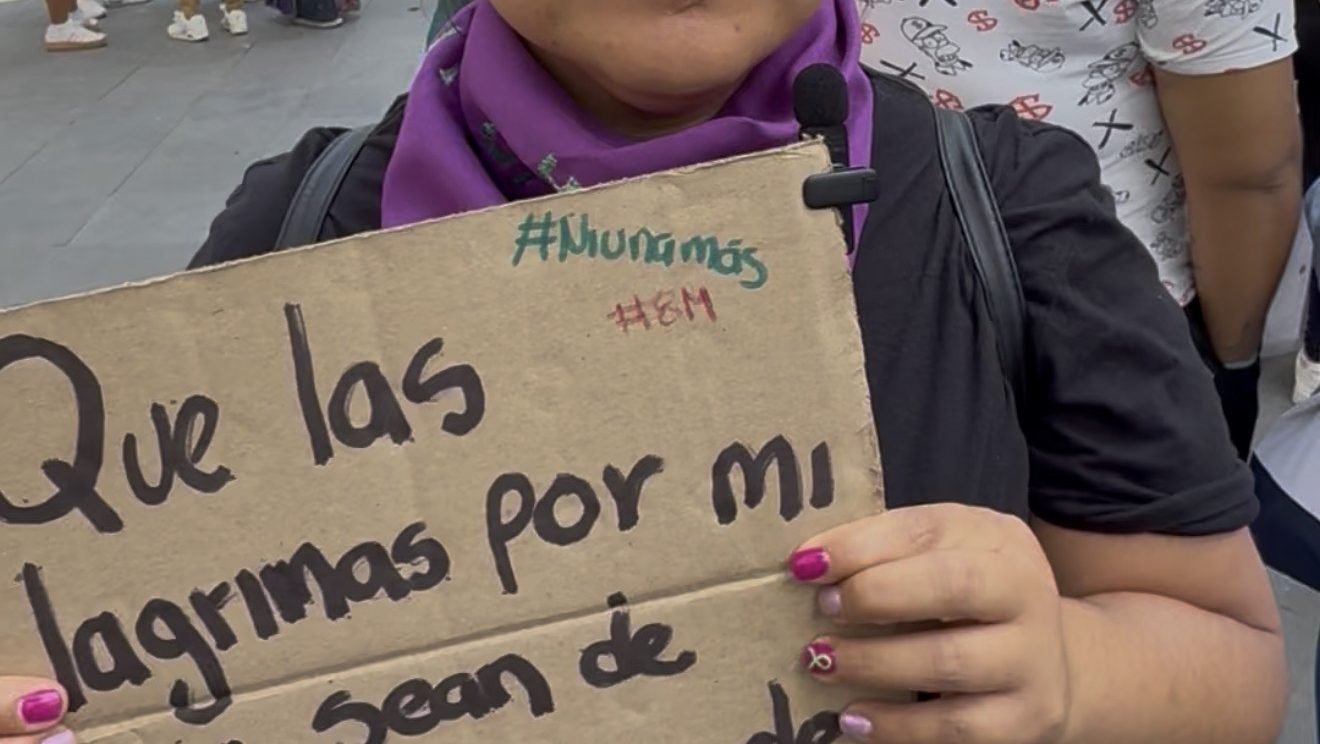 #Niunamás
#8M
Que las
lagrimas por mi
sean de
de